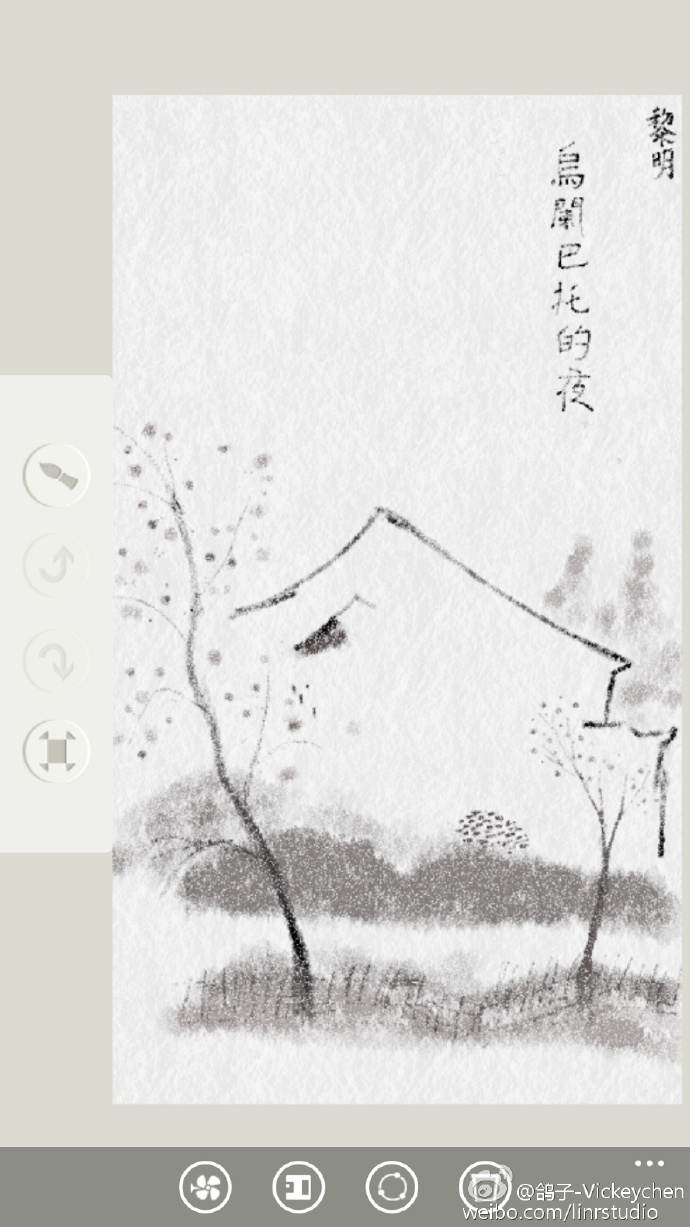 黎明
烏蘭巴托的夜
@鸽子-Vickeychen
weibo.com/linrstudio